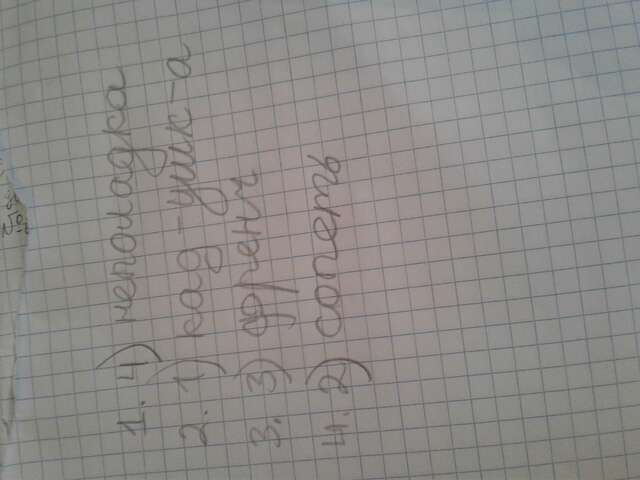 1. 4) неполадка
2. 1) кад-ушк-а
3. 3) френч
4. 2) сопеть